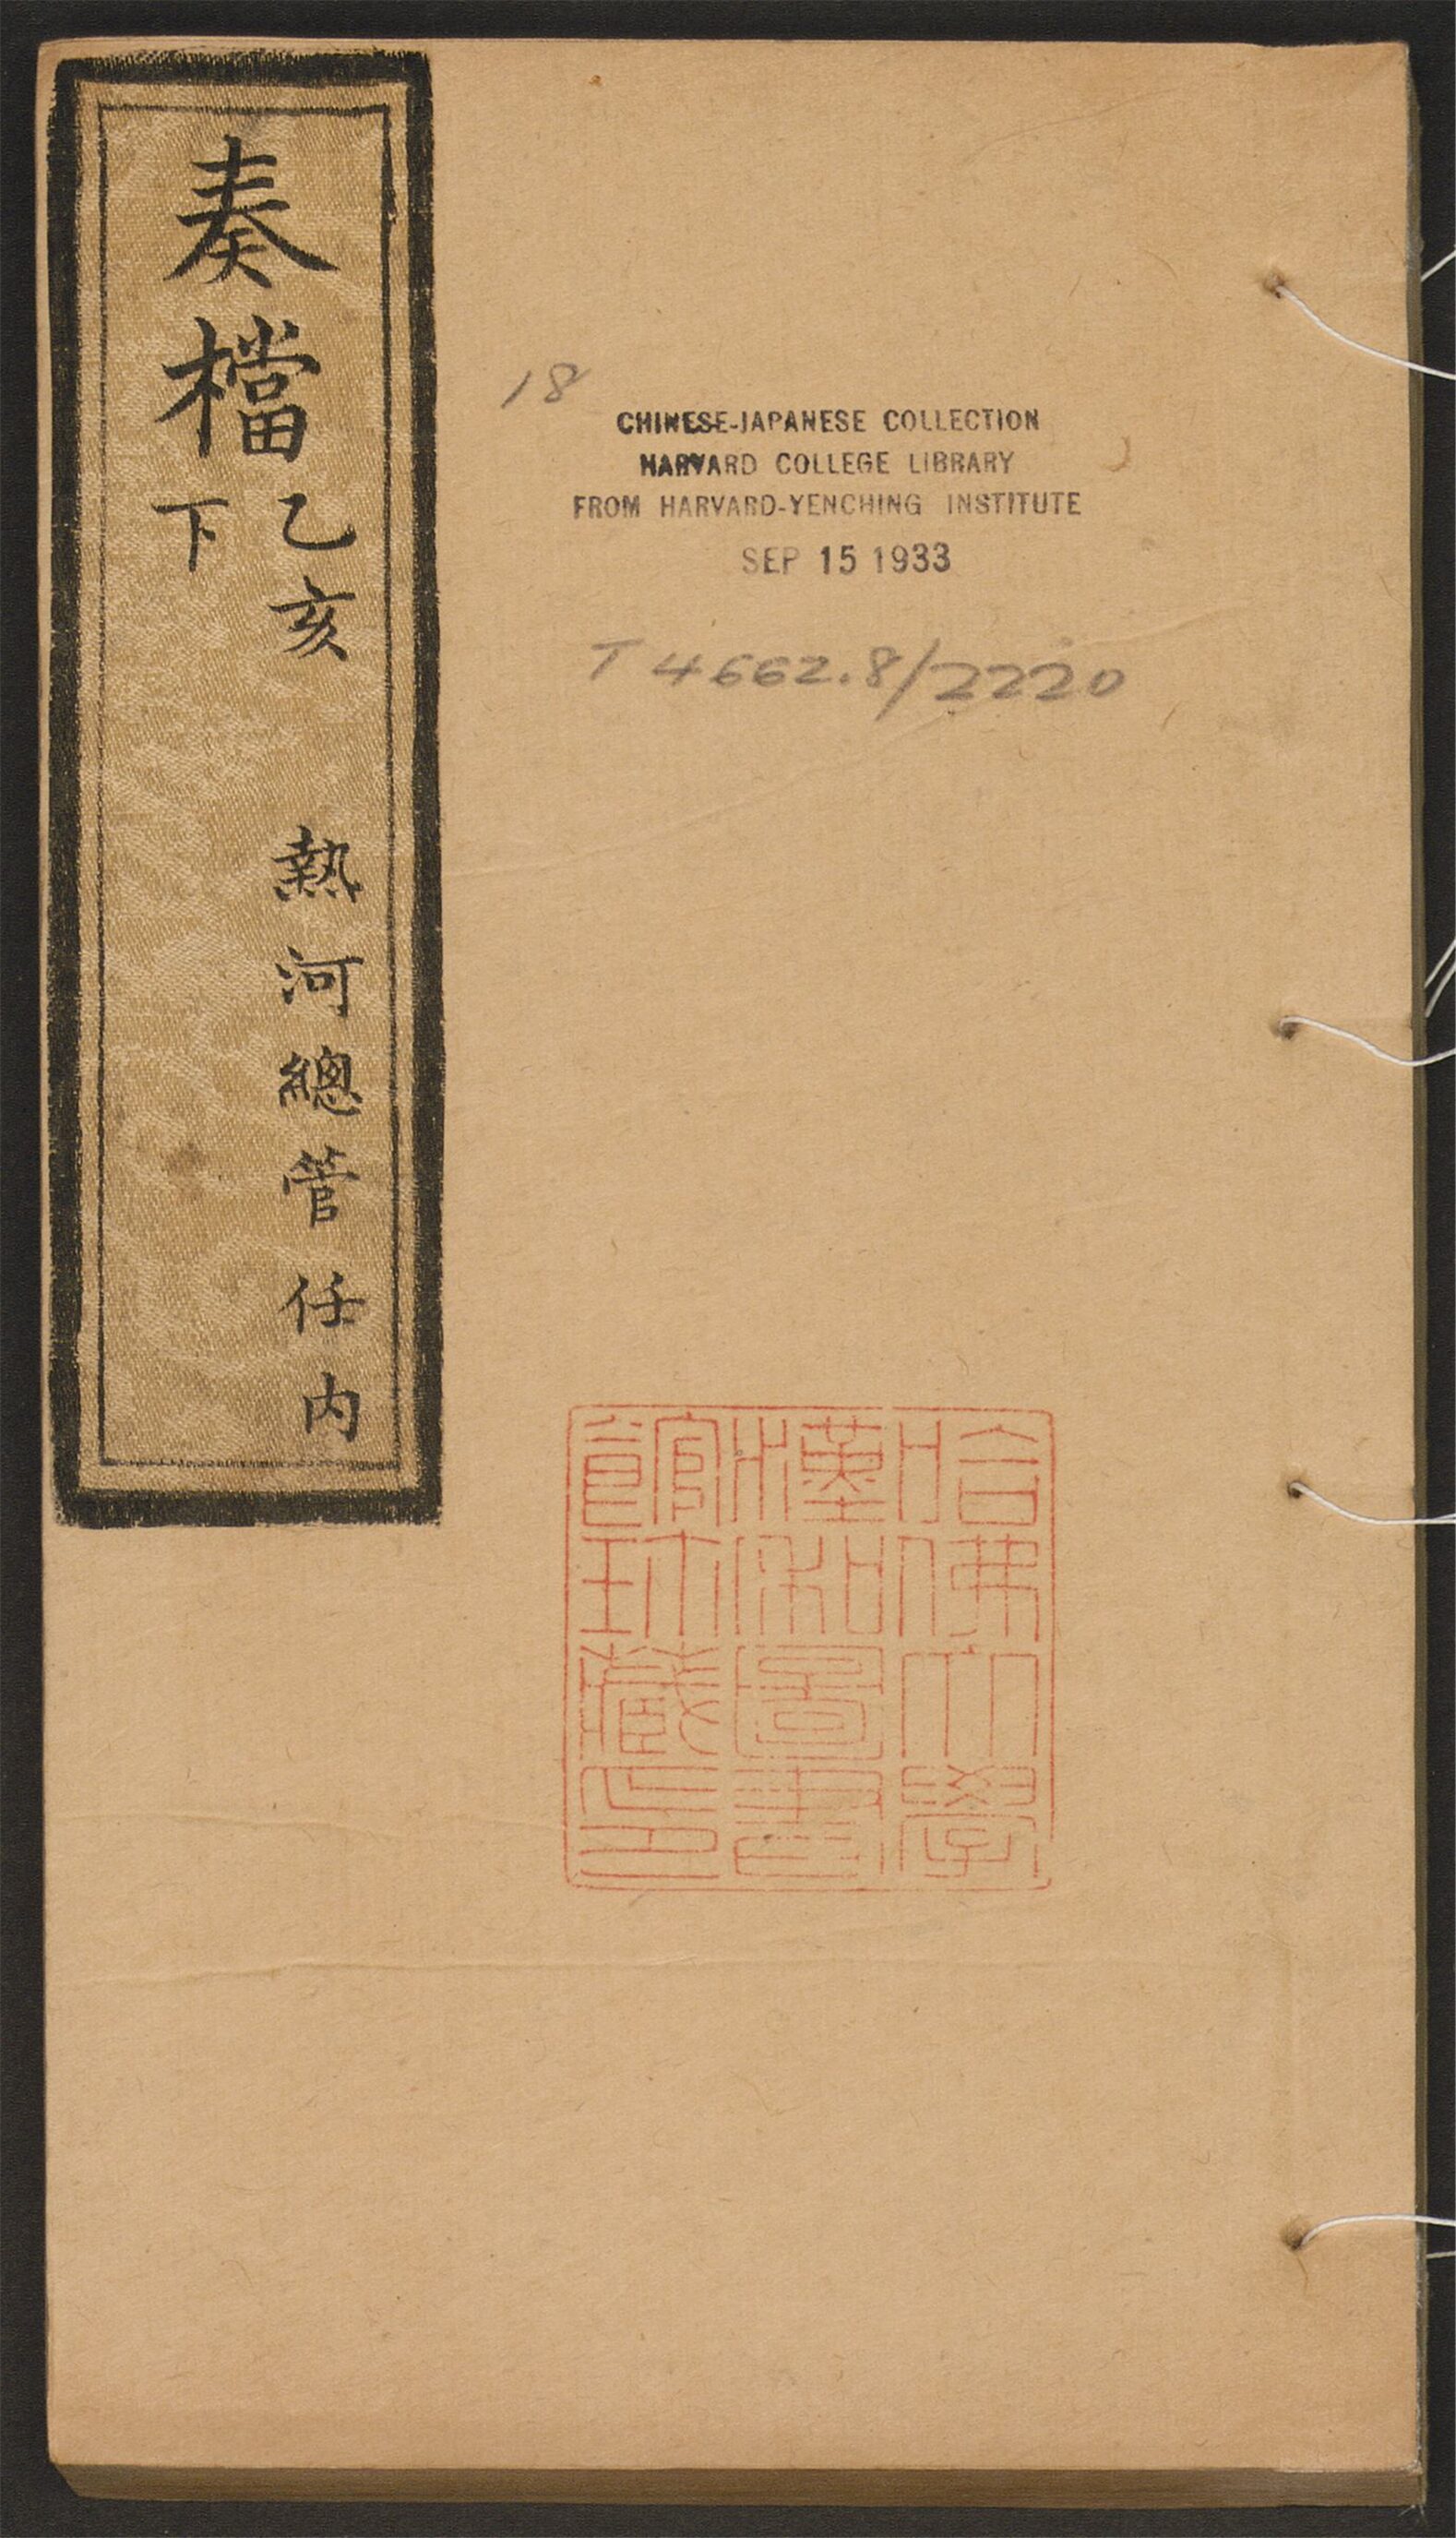 奏檔
乙亥 熱河總管任內
下
18
CHINESE-JAPANESE COLLECTION
HARVARD COLLEGE LIBRARY
FROM HARVARD-YENCHING INSTITUTE
SEP 15 1933
T 4662.8/2220
哈佛大學
漢和圖書
館珍藏印